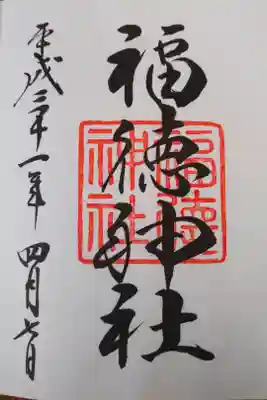 福徳神社
福徳
神社
平成三十一年四月七日